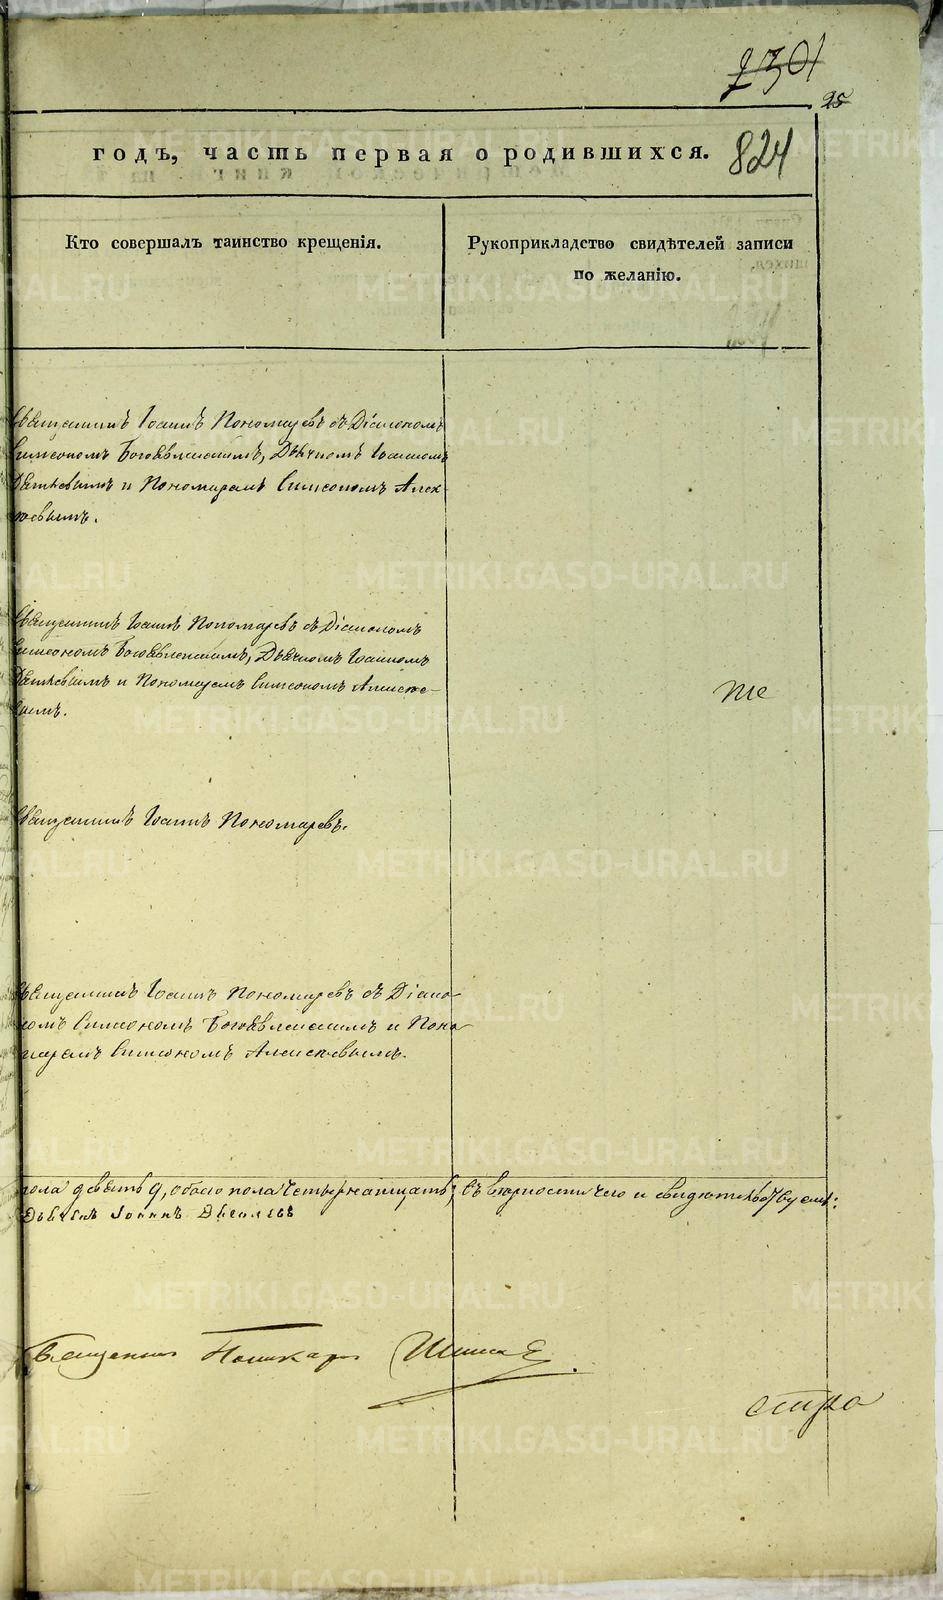 7301
25
годъ, часть первая о родившихся.
824
Кто совершалъ таинство крещенія.
Рукоприкладство свидѣтелей записи
по желанію.
Священникъ Іоаннъ Пономаревъ съ Діакономъ
Симеономъ Богоявленскимъ, Дьячкомъ Іоанномъ
и Пономаремъ Симеономъ Алек-
сѣевымъ.
Священникъ Іоаннъ Пономаревъ съ Діакономъ
Симеономъ Богоявленскимъ, Дьячкомъ Іоанномъ
и Пономаремъ Симеономъ Алексѣе-
вымъ.
Священникъ Іоаннъ Пономаревъ.
Священникъ Іоаннъ Пономаревъ съ Діако-
номъ Симеономъ Богоявленскимъ и Поно-
маремъ Симеономъ Алексѣевымъ.
пола девять 9, обоего пола четырнатцать; въ вѣрности чего и свидѣтельствуемъ:
Дьячекъ Іоаннъ
Священникъ
METRIKI.GASO-URAL.RU